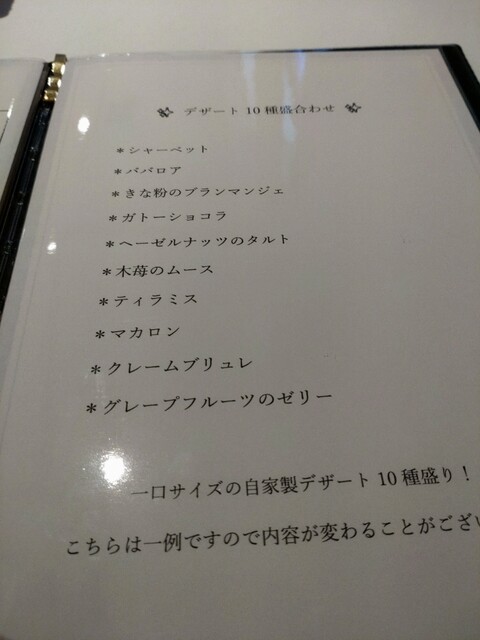 デザート10種盛合わせ
＊シャーベット
＊ババロア
＊きな粉のブランマンジェ
＊ガトーショコラ
＊ヘーゼルナッツのタルト
＊木苺のムース
＊ティラミス
＊マカロン
＊クレームブリュレ
＊グレープフルーツのゼリー
一口サイズの自家製デザート10種盛り！
こちらは一例ですので内容が変わることがござい